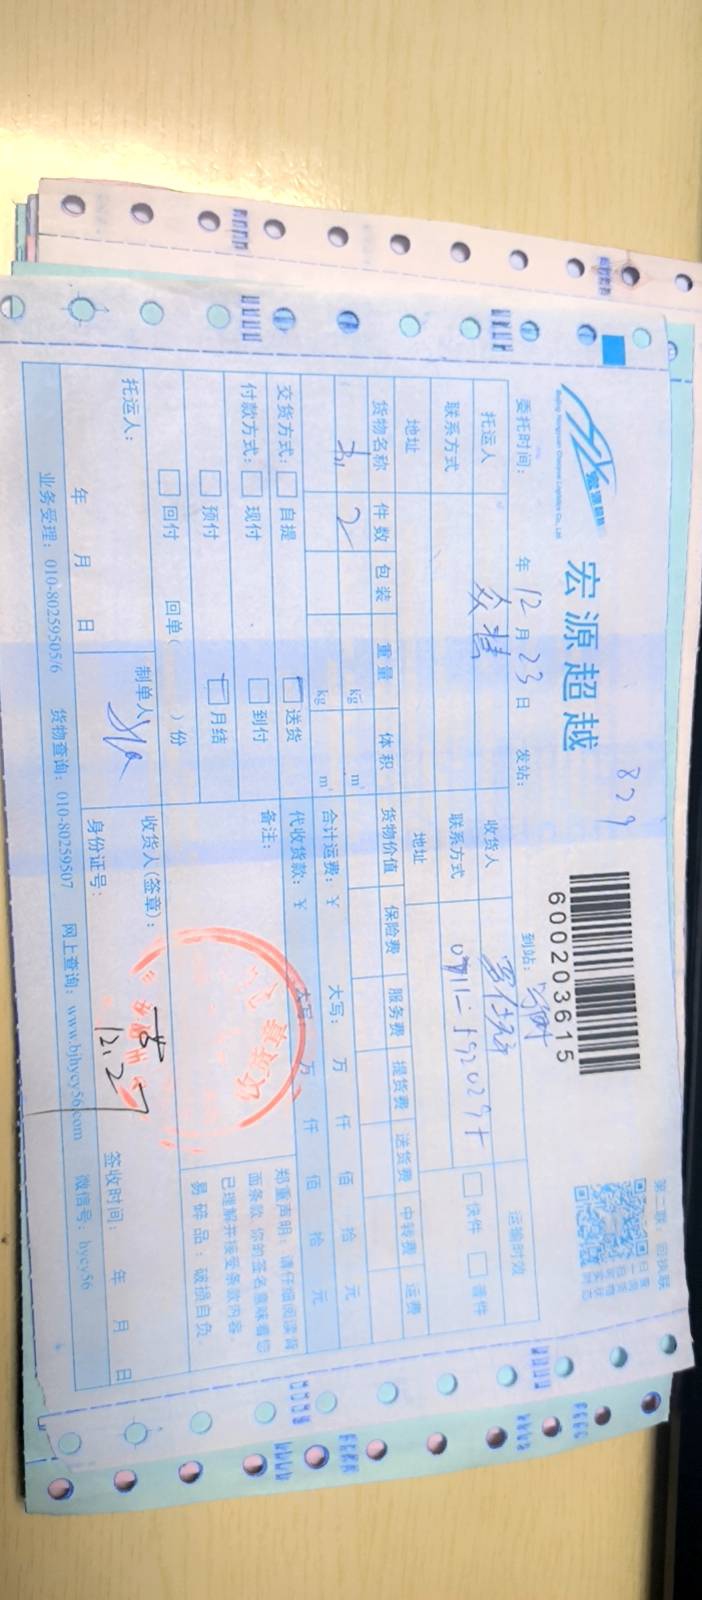 宏源超越
829
600203615
第二联：回执联
委托时间： 年 12 月 23 日 发站： 到站：
托运人 收货人 运输时效
联系方式 联系方式 快件 普件
地址 地址
货物名称 件数 包装 重量 体积 货物价值 保险费 服务费 提货费 送货费 中转费 运费
2 kg m³
kg m³ 合计运费：¥ 大写： 万 仟 佰 拾 元
交货方式： 自提 送货 代收货款：¥ 大写： 万 仟 佰 拾 元
付款方式： 现付 到付 备注：
预付 月结
回付 回单( )份
郑重声明：请仔细阅读背
面条款,你的签名意味着您
已理解并接受条款内容。
易碎品：破损自负
托运人： 制单人 收货人(签章)：
12.27
年 月 日 身份证号： 签收时间： 年 月 日
业务受理：010-80259505/6 货物查询：010-80259507 网上查询：www.bjhycy56.com 微信号：hycy56